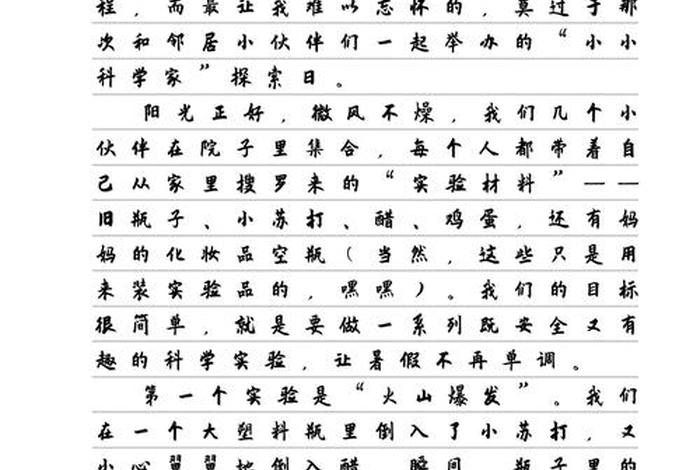 程，而最让我难以忘怀的，莫过于那
次和邻居小伙伴们一起举办的“小小
科学家”探索日。
阳光正好，微风不燥，我们几个小
伙伴在院子里集合，每个人都带着自
己从家里搜罗来的“实验材料”——
旧瓶子、小苏打、醋、鸡蛋，还有妈
妈的化妆品空瓶（当然，这些只是用
来装实验品的，嘿嘿）。我们的目标
很简单，就是要做一系列既安全又有
趣的科学实验，让暑假不再单调。
第一个实验是“火山爆发”。我们
在一个大塑料瓶里倒入了小苏打，又
小心翼翼地倒入醋，瞬间，瓶子里的